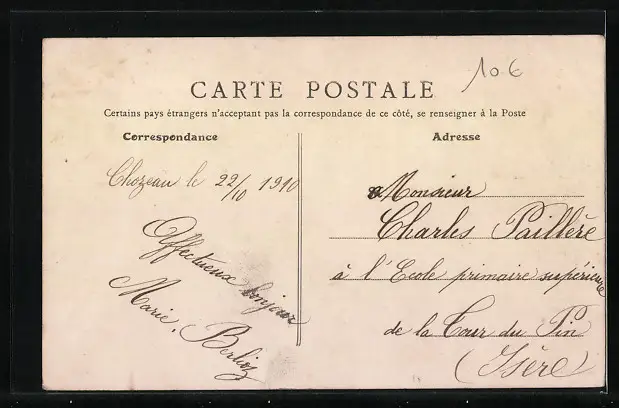 106
CARTE POSTALE
Certains pays étrangers n'acceptant pas la correspondance de ce côté, se renseigner à la Poste
Correspondance
Chozeau le 22/10 1910
Affectueux bonjour
Marie, Berlioz
Adresse
Monsieur
Charles Paillère
à l'Ecole primaire supérieure
de la Tour du Pin
(Isère)